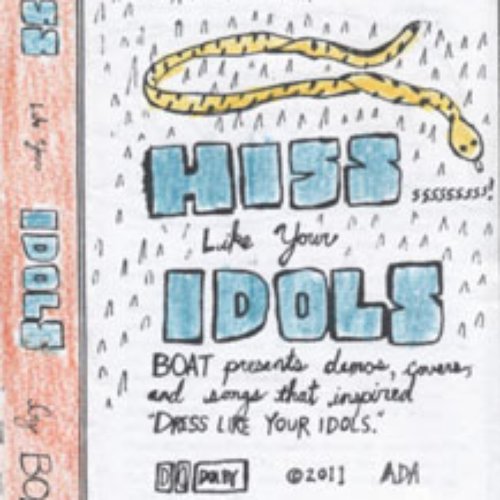 SS
Like Your
IDOLS
by BOA
HISS
sssssssss!
Like Your
IDOLS
BOAT presents demos, covers,
and songs that inspired
"DRESS LIKE YOUR IDOLS."
DOLBY ©2011 ADA